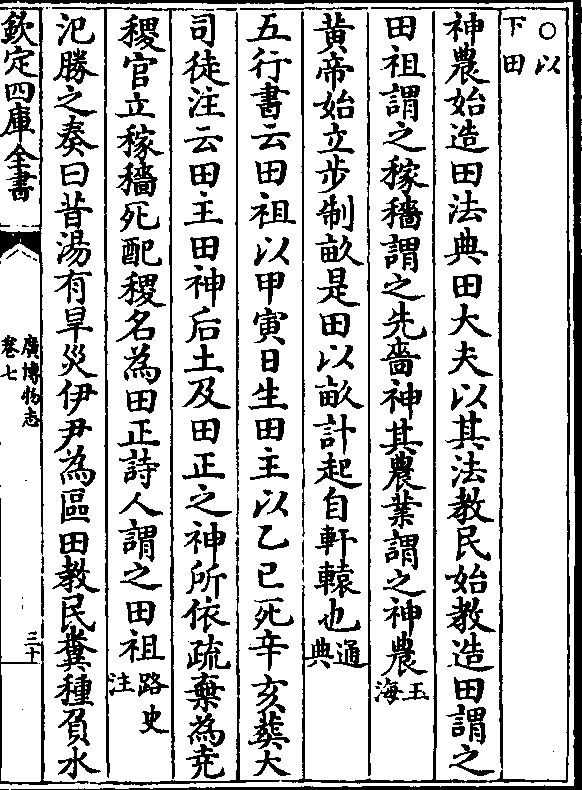 ○以
下田
神農始造田法典田大夫以其法教民始教造田謂之
田祖謂之稼穡謂之先嗇神其農業謂之神農玉
海
黃帝始立步制畝是田以畝計起自軒轅也通
典
五行書云田祖以甲寅日生田主以乙巳死辛亥葬大
司徒注云田主田神后土及田正之神所依疏棄為堯
稷官立稼穡死配稷名為田正詩人謂之田祖路史
注
氾勝之奏曰昔湯有旱災伊尹為區田教民糞種負水
欽定四庫全書
廣博物志
卷七
三十